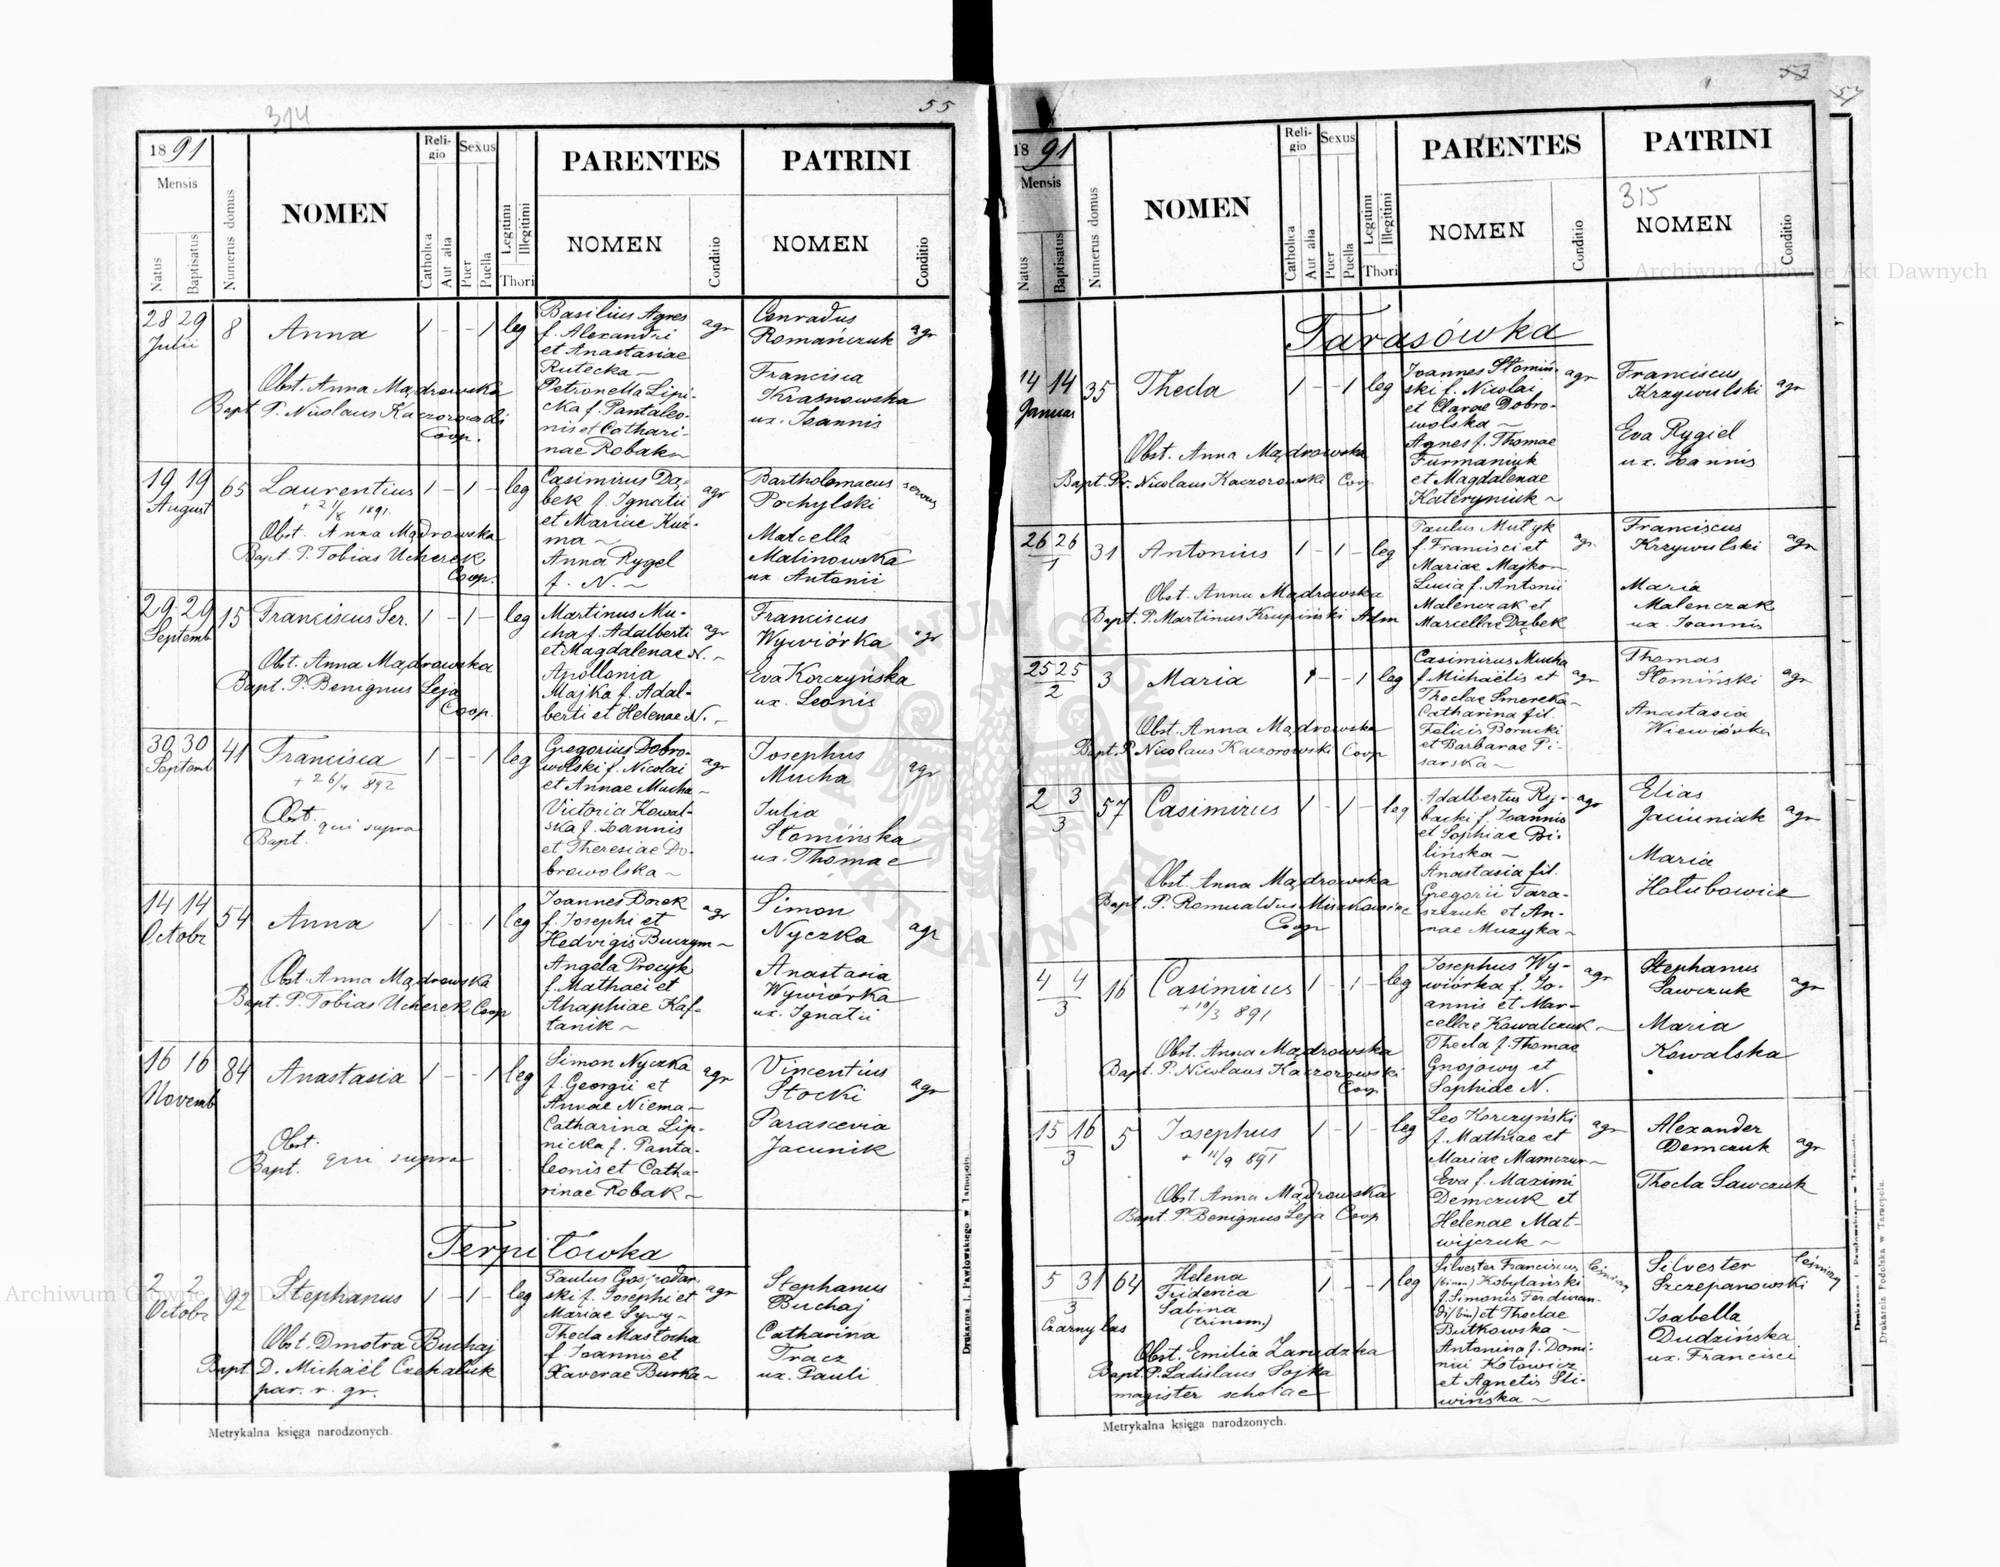 314
55
1891
Mensis
Natus
Baptisatus
Numerus domus
NOMEN
Religio
Catholica
Aut alia
Sexus
Puer
Puella
Legitimi
Illegitimi
Thori
PARENTES
NOMEN
Conditio
PATRINI
NOMEN
Conditio
28 29
Julii
8
Anna
1 - - 1
leg
Basilius Agres
f. Alexandri
et Anastasiae
Rutecka ~
Petronella Lipi-
cka f. Pantaleo-
nis et Cathari-
nae Robak ~
agr
Conradus
Romanczuk
agr
Francisca
Krasnowska
ux. Joannis
Obst. Anna Mądrowska
Bapt. P. Nicolaus Kaczorowski
Coop.
19 19
August
65
Laurentius
+ 21/8 1891.
1 - 1 -
leg
Casimirus Dą-
bek f. Ignatii
et Mariae Kuź-
ma ~
Anna Rygel
f. N. ~
agr
Bartholomaeus
Pochylski
servus
Marcella
Malinowska
ux. Antonii
Obst. Anna Mądrowska
Bapt. P. Tobias Ucherek
Coop.
29 29
Septemb
15
Franciscus Ser.
1 - 1 -
leg
Martinus Mu-
cha f. Adalberti
et Magdalenae N. ~
Apollonia
Majka f. Adal-
berti et Helenae N. ~
agr
Franciscus
Wywiórka
agr
Eva Korczyńska
ux. Leonis
Obst. Anna Mądrowska
Bapt. P. Benignus Leja
Coop.
30 30
Septemb
41
Francisca
+ 26/4 892
1 - - 1
leg
Gregorius Dobro-
wolski f. Nicolai
et Annae Mucha ~
Victoria Kowal-
ska f. Joannis
et Theresiae Do-
browolska ~
agr
Josephus
Mucha
agr
Julia
Słomińska
ux. Thomae
Obst.
Bapt. qui supra
14 14
Octobr
54
Anna
1 - - 1
leg
Joannes Borek
f. Josephi et
Hedvigis Buczym ~
Angela Procyk
f. Mathaei et
Ahaphiae Kaf-
tanik ~
agr
Simon
Nyczka
agr
Anastasia
Wywiórka
ux. Ignatii
Obst. Anna Mądrowska
Bapt. P. Tobias Ucherek Coop
16 16
Novemb
84
Anastasia
1 - - 1
leg
Simon Nyczka
f. Georgii et
Annae Niema ~
Catharina Lip-
nicka f. Panta-
leonis et Catha-
rinae Robak ~
agr
Vincentius
Stocki
agr
Parascevia
Jacunik
Obst.
Bapt. qui supra
Terpiłówka
2 2
Octobr
92
Stephanus
1 - 1 -
leg
Paulus Gospodar-
ski f. Josephi et
Mariae Sywy ~
Thecla Mastocha
f. Joannis et
Xaverae Burka ~
agr
Stephanus
Buchaj
Catharina
Tracz
ux. Pauli
Obst. Dmotra Buchaj
Bapt. D. Michaël Czekaluk
par. r. gr.
Metrykalna księga narodzonych.
Drukarnia J. Pawłowskiego w Tarnopolu.
53
1891
Mensis
Natus
Baptisatus
Numerus domus
NOMEN
Religio
Catholica
Aut alia
Sexus
Puer
Puella
Legitimi
Illegitimi
Thori
PARENTES
NOMEN
Conditio
PATRINI
315
NOMEN
Conditio
Tarasówka
14 14
Januar
35
Thecla
1 - - 1
leg
Joannes Słomiń-
ski f. Nicolai
et Clarae Dobro-
wolska ~
Agnes f. Thomae
Furmaniuk
et Magdalenae
Kateryniuk ~
agr
Franciscus
Krzywulski
agr
Eva Rygiel
ux. Joannis
Obst. Anna Mądrowska
Bapt. Pr. Nicolaus Kaczorowski Coop
26 26
1
31
Antonius
1 - 1 -
leg
Paulus Mutyk
f. Francisci et
Mariae Majko ~
Lucia f. Antonii
Malenczak et
Marcellae Dąbek
agr
Franciscus
Krzywulski
agr
Maria
Malenczak
ux. Joannis
Obst. Anna Mądrowska
Bapt. P. Martinus Krupiński Adm
25 25
2
3
Maria
1 - - 1
leg
Casimirus Mucha
f. Michaëlis et
Theclae Smereka ~
Catharina fil.
Felicis Borucki
et Barbarae Pi-
sarska ~
agr
Thomas
Słomiński
agr
Anastasia
Wiewiórka
Obst. Anna Mądrowska
Bapt. P. Nicolaus Kaczorowski Coop
2 3
3
57
Casimirus
1 - 1 -
leg
Adalbertus Ry-
backi f. Joannis
et Sophiae Bi-
lińska ~
Anastasia fil.
Gregorii Tara-
szczuk et An-
nae Muzyka ~
agr
Elias
Jacuniak
agr
Maria
Hołubowicz
Obst. Anna Mądrowska
Bapt. P. Romualdus Miszkowicz
Coop
4 4
3
16
Casimirus
+ 19/3 891
1 - 1 -
leg
Josephus Wy-
wiórka f. Jo-
annis et Mar-
cellae Kowalczuk ~
Thecla f. Thomae
Gnojowy et
Sophiae N.
agr
Stephanus
Sawczuk
agr
Maria
Kowalska
Obst. Anna Mądrowska
Bapt. P. Nicolaus Kaczorowski
Coop
15 16
3
5
Josephus
+ 11/9 891
1 - 1 -
leg
Leo Korczyński
f. Mathiae et
Mariae Mamczur ~
Eva f. Maximi
Demczuk et
Helenae Mat-
wijczuk ~
agr
Alexander
Demczuk
agr
Thecla Sawczuk
Obst. Anna Mądrowska
Bapt. P. Benignus Leja Coop
5 31
3
Czarny las
64
Helena
Friderica
Sabina
(trinom)
1 - - 1
leg
Silvester Franciscus
(binom) Kobylański
f. Simonis Ferdinan-
di (bin) et Theclae
Butkowska ~
Antonina f. Domi-
nici Kotowicz
et Agnetis Śli-
wińska ~
leśniczy
Silvester
Szczepanowski
leśniczy
Isabella
Dudzińska
ux. Francisci
Obst. Emilia Zarudzka
Bapt. P. Ladislaus Sojka
magister scholae
Metrykalna księga narodzonych.
Drukarnia J. Pawłowskiego w Tarnopolu.
Drukarnia Podolska w Tarnopolu.
Archiwum Główne Akt Dawnych
Archiwum Główne Akt Dawnych
ARCHIWUM GŁÓWNE AKT DAWNYCH